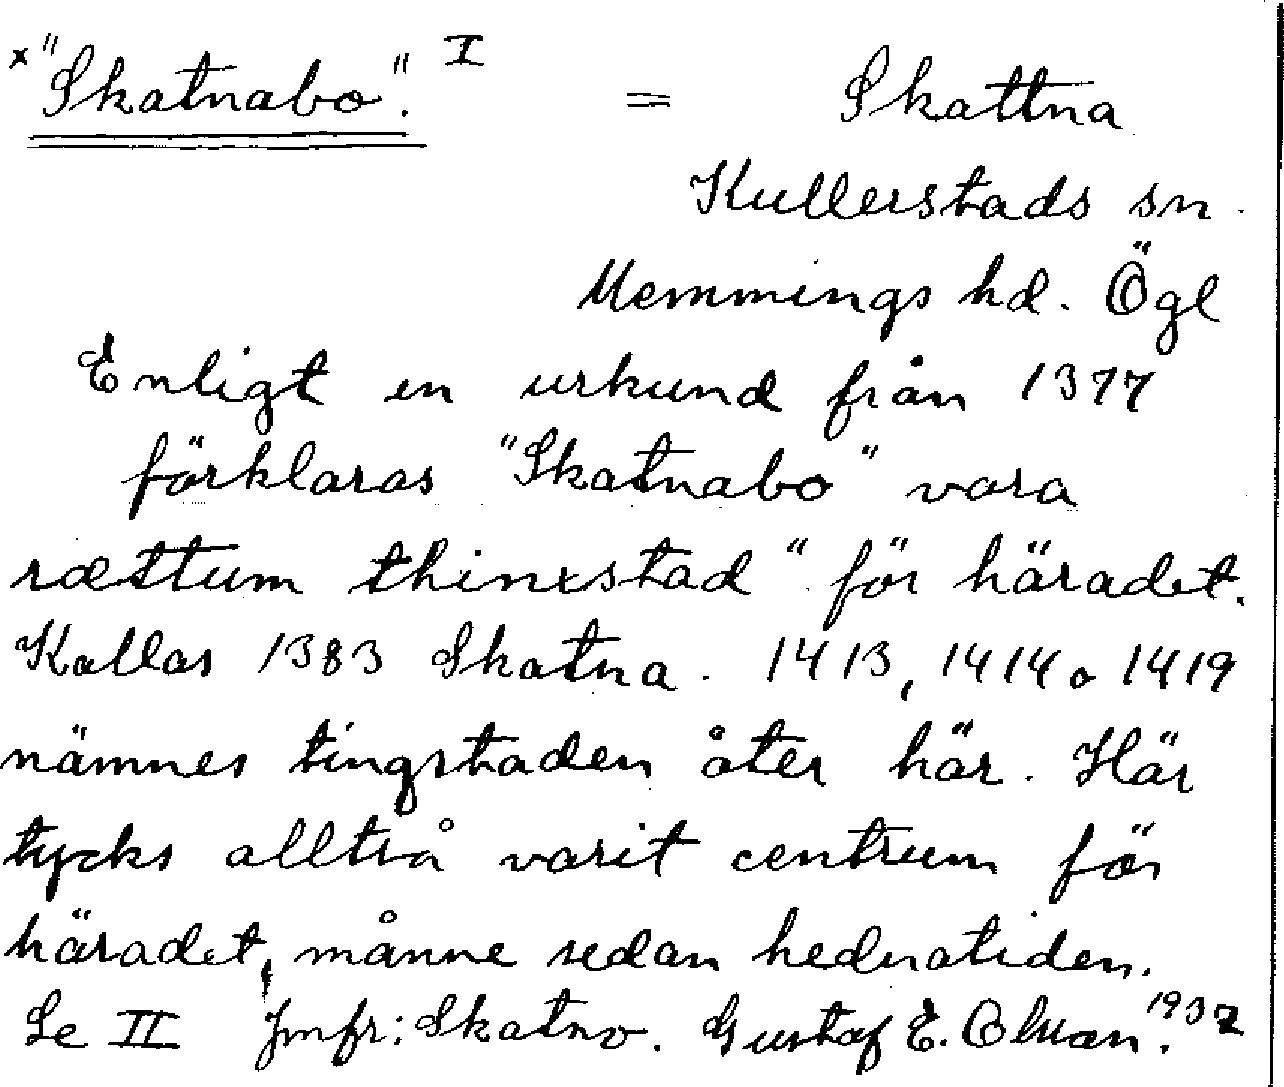 x "Skatnabo". I = Skattna
Kullerstads sn.
Memmings hd. Ögl
Enligt en urkund från 1377
förklaras "Skatnabo" vara
rættum thinxstad" för häradet.
Kallas 1383 Skatna. 1413, 1414 o 1419
nämnes tingstaden åter här. Här
tycks alltså varit centrum för
häradet, månne sedan hednatiden.
Se II Jmfr: Skatna. Gustaf E. 1937